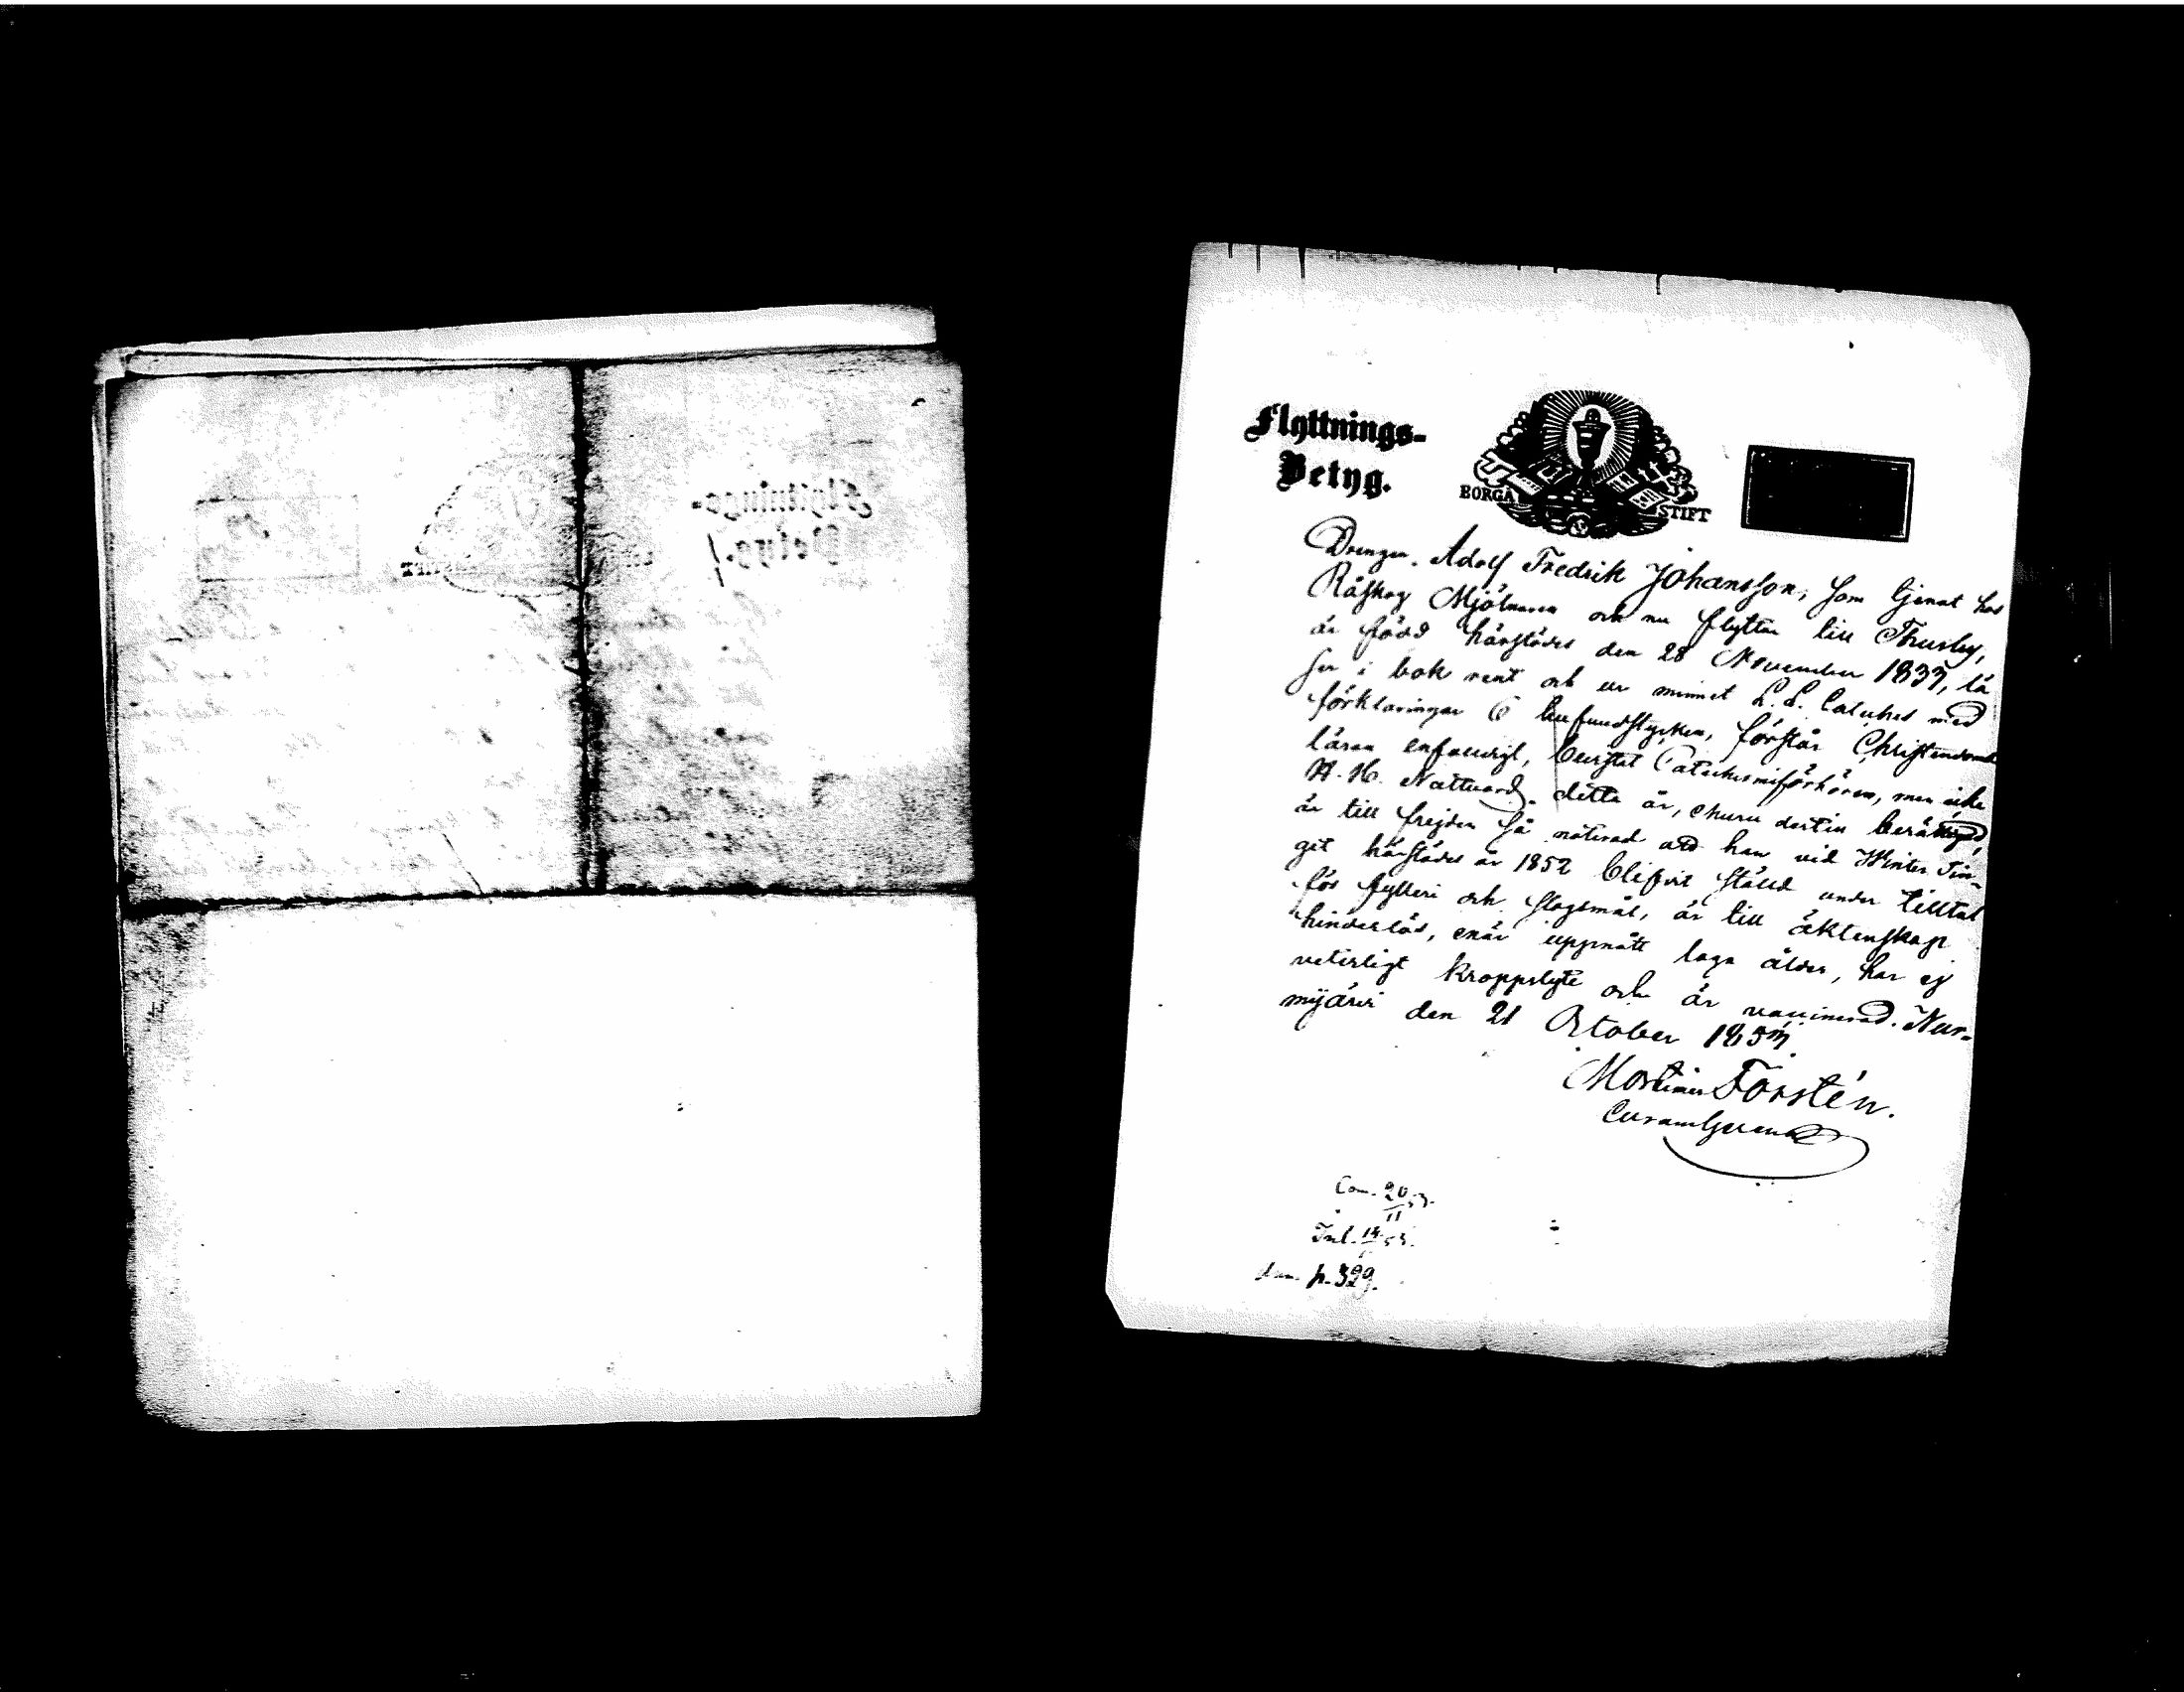 Flyttnings-
Betyg.
BORGÅ STIFT
Drengen Adolf Fredrik Johansson, som tjenat hos
Råskog Mjölnaren och nu flyttar till Thusby,
är född härstädes den 28 November 1833, lä
ser i bok rent och ur minnet L. S. Cateches med
förklaringar 6 hufvudstycken, förstår Christendoms
läran enfaldigt, bevistat Catechismiförhören, men icke
H. H. Nattvard detta år, ehuru dertill berättigad,
är till frejden så noterad att han vid Winter Tin-
get härstädes år 1852 blifvit ställd under tilltal
för fylleri och slagsmål, är till äktenskap
hinderlös, enär uppnått laga ålder, har ej
veterligt kroppslyte och är vaccinerad. Nur-
mijärvi den 21 October 1853.
Mortimer Forstén.
Curam Gerens
Com. 20/11 53.
Inl. 53.
p. 329.